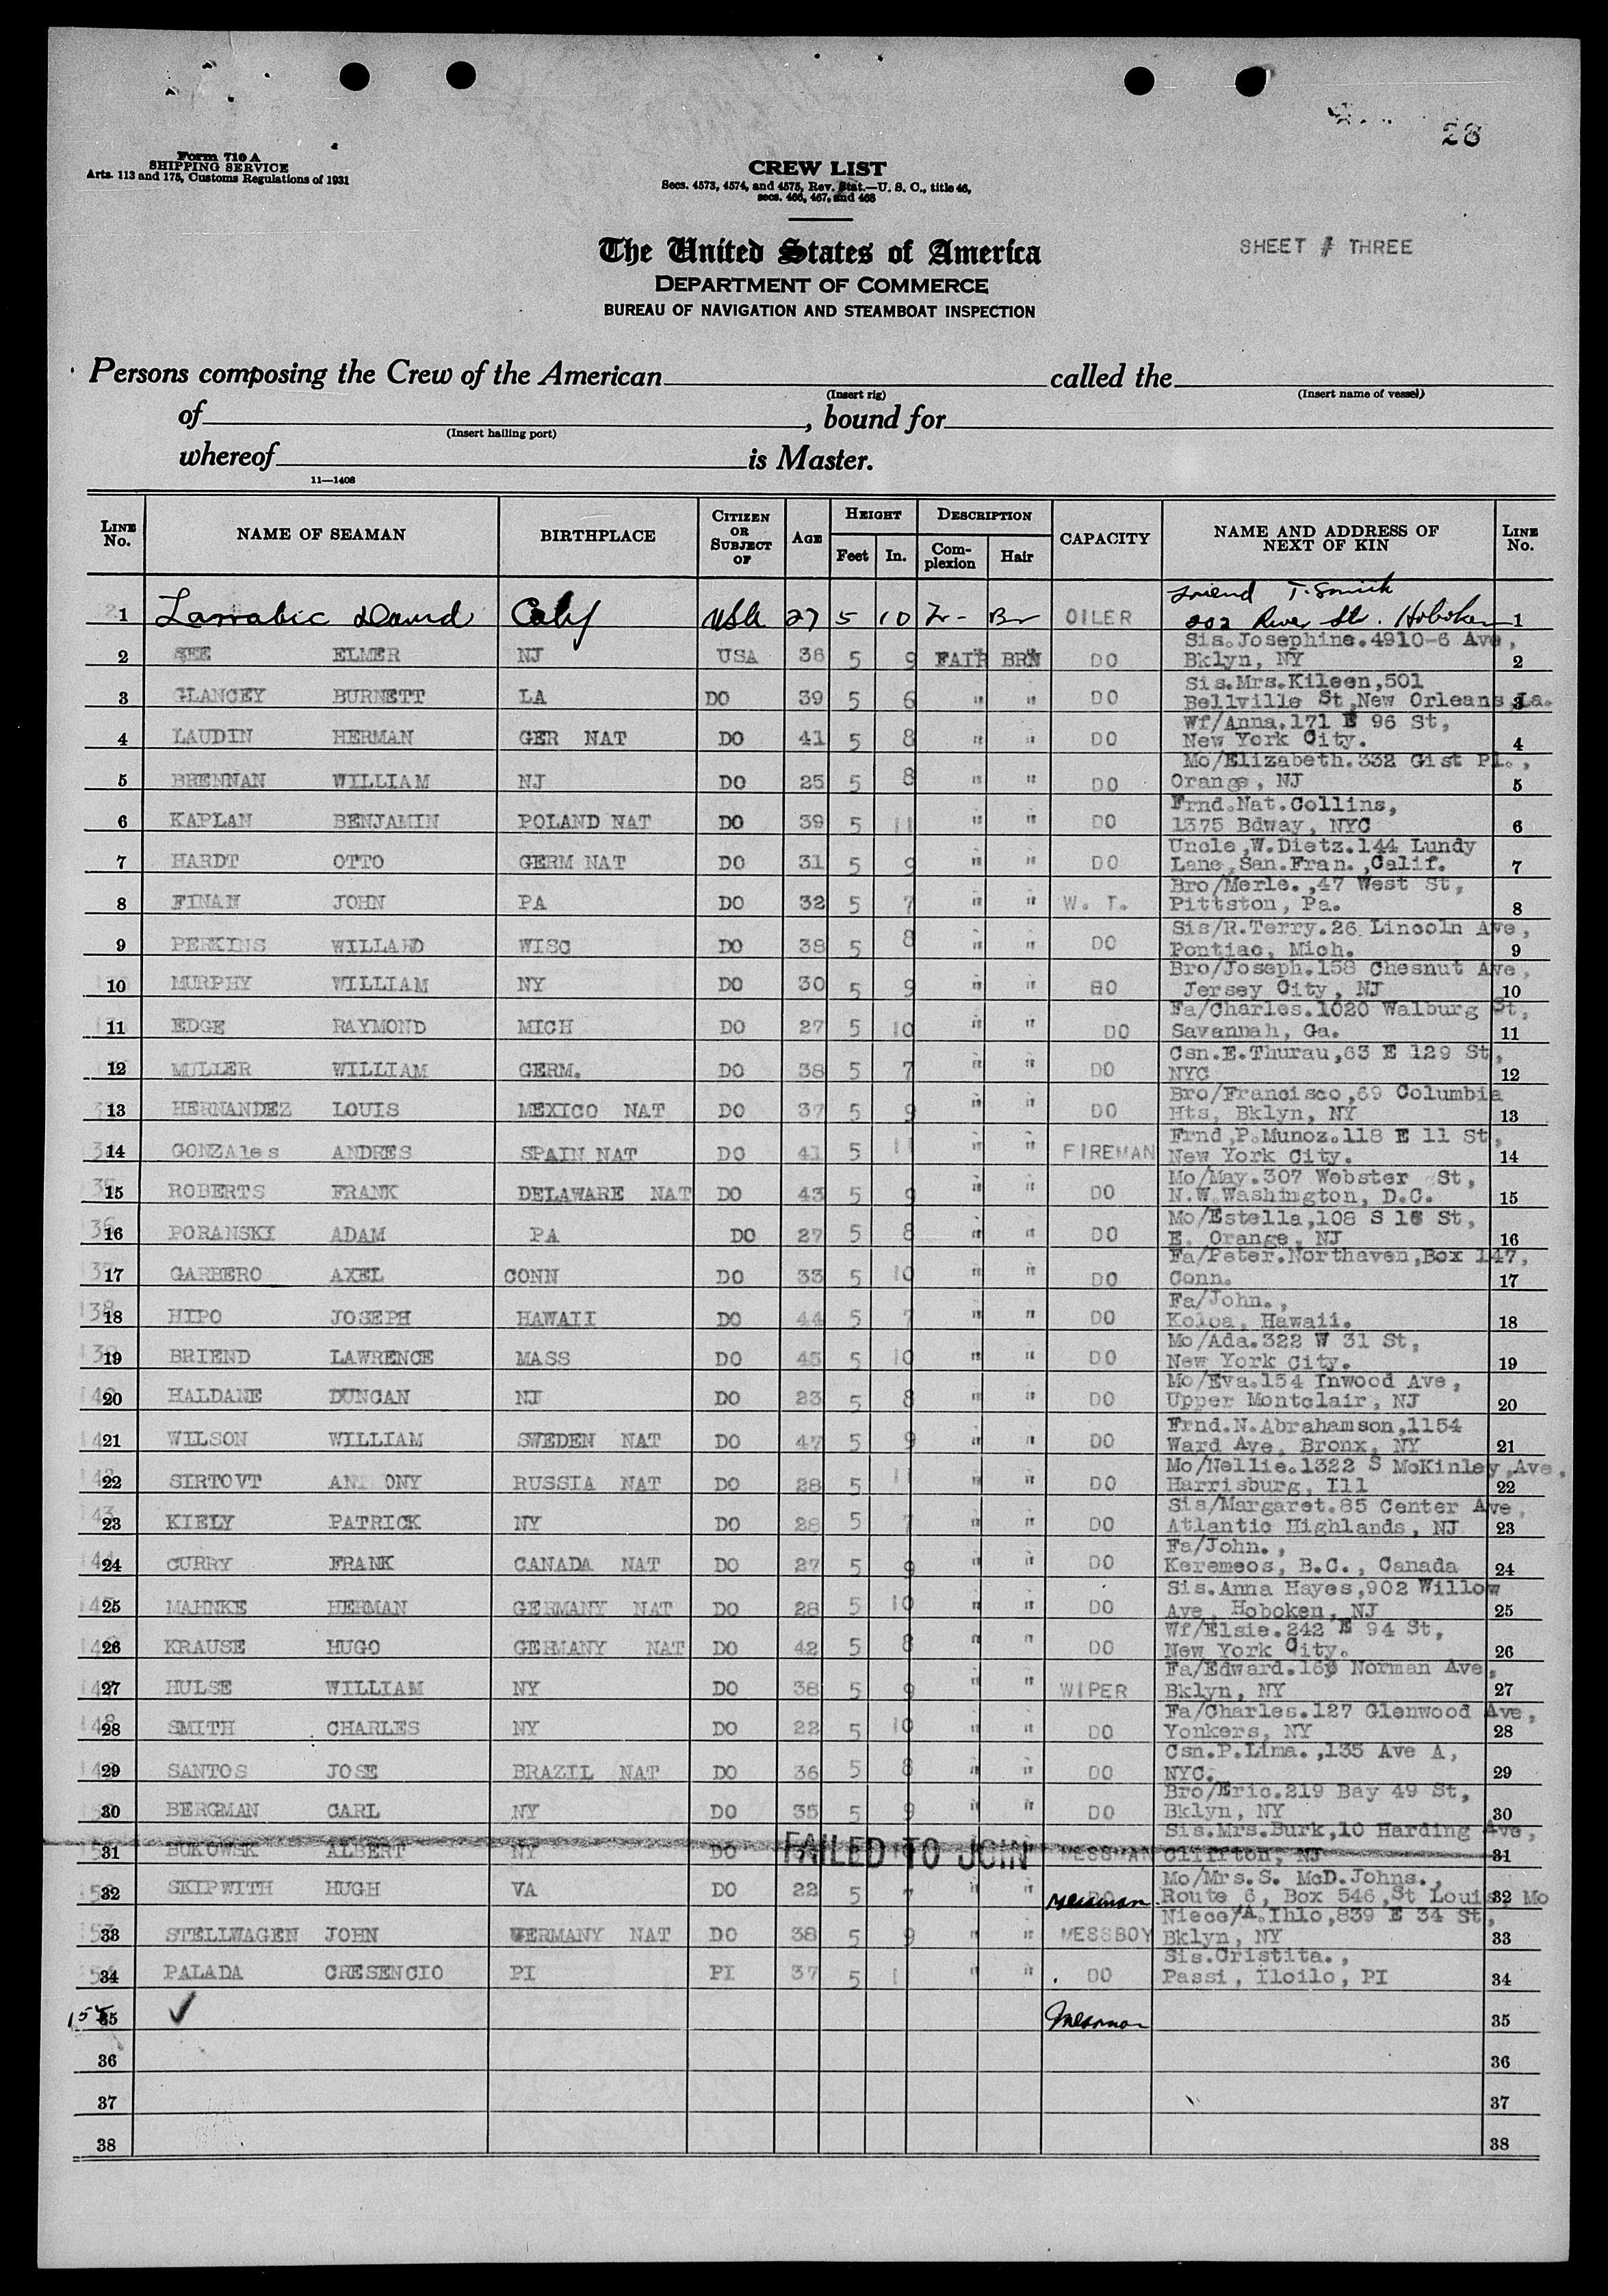 28
Form 710 A
SHIPPING SERVICE
Arts. 113 and 175, Customs Regulations of 1931
CREW LIST
Secs. 4573, 4574, and 4575, Rev. Stat.—U. S. C., title 46,
secs. 466, 467, and 468
The United States of America
SHEET # THREE
DEPARTMENT OF COMMERCE
BUREAU OF NAVIGATION AND STEAMBOAT INSPECTION
Persons composing the Crew of the American called the
(Insert rig) (Insert name of vessel)
of , bound for
(Insert hailing port)
whereof is Master.
11—1408
LINE No. NAME OF SEAMAN BIRTHPLACE CITIZEN OR SUBJECT OF AGE HEIGHT Feet In. DESCRIPTION Complexion Hair CAPACITY NAME AND ADDRESS OF NEXT OF KIN LINE No.
Friend T. Smith
1 Larrabic David Calif USA 27 5 10 Fr- Br OILER 202 River St. Hoboken 1
Sis.Josephine.4910-6 Ave,
2 SEE ELMER NJ USA 36 5 9 FAIR BRN DO Bklyn, NY 2
Sis.Mrs.Kileen,501
3 GLANCEY BURNETT LA DO 39 5 6 " " DO Bellville St,New Orleans,La. 3
Wf/Anna.171 E 96 St,
4 LAUDIN HERMAN GER NAT DO 41 5 8 " " DO New York City. 4
Mo/Elizabeth.332 Gist Pl.,
5 BRENNAN WILLIAM NJ DO 25 5 8 " " DO Orange, NJ 5
Frnd.Nat.Collins,
6 KAPLAN BENJAMIN POLAND NAT DO 39 5 11 " " DO 1375 Bdway, NYC 6
Uncle,W.Dietz.144 Lundy
7 HARDT OTTO GERM NAT DO 31 5 9 " " DO Lane,San.Fran.,Calif. 7
Bro/Merle.,47 West St,
8 FINAN JOHN PA DO 32 5 7 " " W. T. Pittston, Pa. 8
Sis/R.Terry.26 Lincoln Ave,
9 PERKINS WILLARD WISC DO 38 5 8 " " DO Pontiac, Mich. 9
Bro/Joseph.158 Chesnut Ave,
10 MURPHY WILLIAM NY DO 30 5 9 " " DO Jersey City, NJ 10
Fa/Charles.1020 Walburg St,
11 EDGE RAYMOND MICH DO 27 5 10 " " DO Savannah, Ga. 11
Csn.E.Thurau,63 E 129 St,
12 MULLER WILLIAM GERM. DO 38 5 7 " " DO NYC 12
Bro/Francisco,69 Columbia
13 HERNANDEZ LOUIS MEXICO NAT DO 37 5 9 " " DO Hts, Bklyn, NY 13
Frnd,P.Munoz.118 E 11 St,
14 GONZAles ANDRES SPAIN NAT DO 41 5 11 " " FIREMAN New York City. 14
Mo/May.307 Webster St,
15 ROBERTS FRANK DELAWARE NAT DO 43 5 9 " " DO N.W.Washington, D.C. 15
Mo/Estella,108 S 16 St,
16 PORANSKI ADAM PA DO 27 5 8 " " DO E. Orange, NJ 16
Fa/Peter.Northaven,Box 147,
17 GARBERO AXEL CONN DO 33 5 10 " " DO Conn. 17
Fa/John.,
18 HIPO JOSEPH HAWAII DO 44 5 7 " " DO Koloa, Hawaii. 18
Mo/Ada.322 W 31 St,
19 BRIEND LAWRENCE MASS DO 45 5 10 " " DO New York City. 19
Mo/Eva.154 Inwood Ave,
20 HALDANE DUNCAN NJ DO 23 5 8 " " DO Upper Montclair, NJ 20
Frnd.N.Abrahamson,1154
21 WILSON WILLIAM SWEDEN NAT DO 47 5 9 " " DO Ward Ave, Bronx, NY 21
Mo/Nellie.1322 S McKinley,Ave,
22 SIRTOVT AN ONY RUSSIA NAT DO 28 5 11 " DO Harrisburg, Ill 22
Sis/Margaret.85 Center Ave,
23 KIELY PATRICK NY DO 28 5 7 " " DO Atlantic Highlands, NJ 23
Fa/John.,
24 CURRY FRANK CANADA NAT DO 27 5 9 " " DO Keremeos, B.C., Canada 24
Sis.Anna Hayes,902 Willow
25 MAHNKE HERMAN GERMANY NAT DO 28 5 10 " " DO Ave, Hoboken, NJ 25
Wf/Elsie.242 E 94 St,
26 KRAUSE HUGO GERMANY NAT DO 42 5 8 " " DO New York City. 26
Fa/Edward. Norman Ave,
27 HULSE WILLIAM NY DO 38 5 9 " " WIPER Bklyn, NY 27
Fa/Charles.127 Glenwood Ave,
28 SMITH CHARLES NY DO 22 5 10 " " DO Yonkers, NY 28
Csn.P.Lima.,135 Ave A,
29 SANTOS JOSE BRAZIL NAT DO 36 5 8 " " DO NYC. 29
Bro/Eric.219 Bay 49 St,
30 BERGMAN CARL NY DO 35 5 9 " " DO Bklyn, NY 30
Sis.Mrs.Burk,10 Harding Ave,
31 BUKOWSK ALBERT NY DO FAILED TO JOIN MESSMAN Cliffton, NJ 31
Mo/Mrs.S. McD.Johns.,
32 SKIPWITH HUGH VA DO 22 5 7 " " DO Messman. Route 6, Box 546,St Louis, Mo 32
Niece/A.Ihlo,839 E 34 St,
33 STELLWAGEN JOHN GERMANY NAT DO 38 5 9 " " MESSBOY Bklyn, NY 33
Sis.Cristita.,
34 PALADA CRESENCIO PI PI 37 5 1 " " DO Passi, Iloilo, PI 34
155 35 ✓ Messman 35
36 36
37 37
38 38